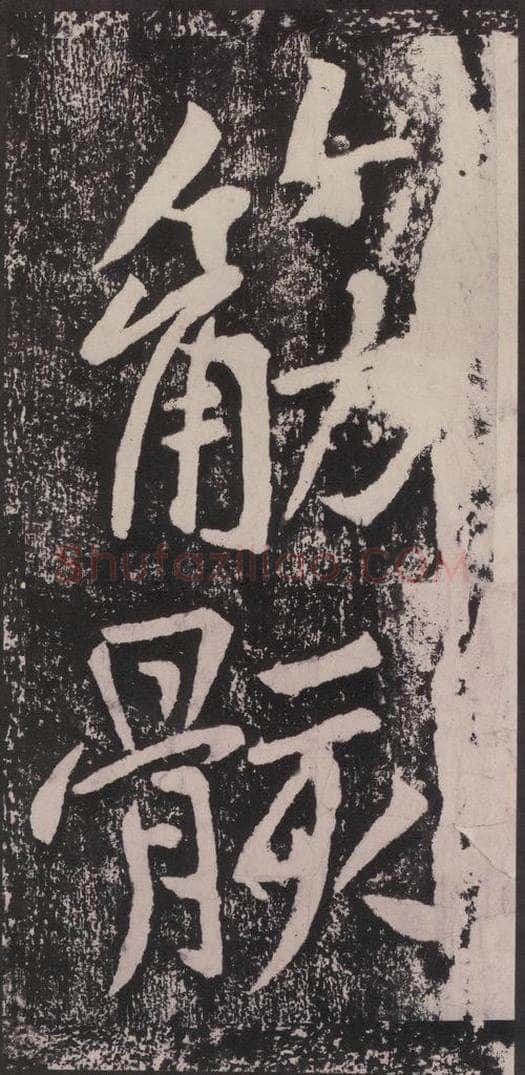 筋
骸
Shufaziliao.COM